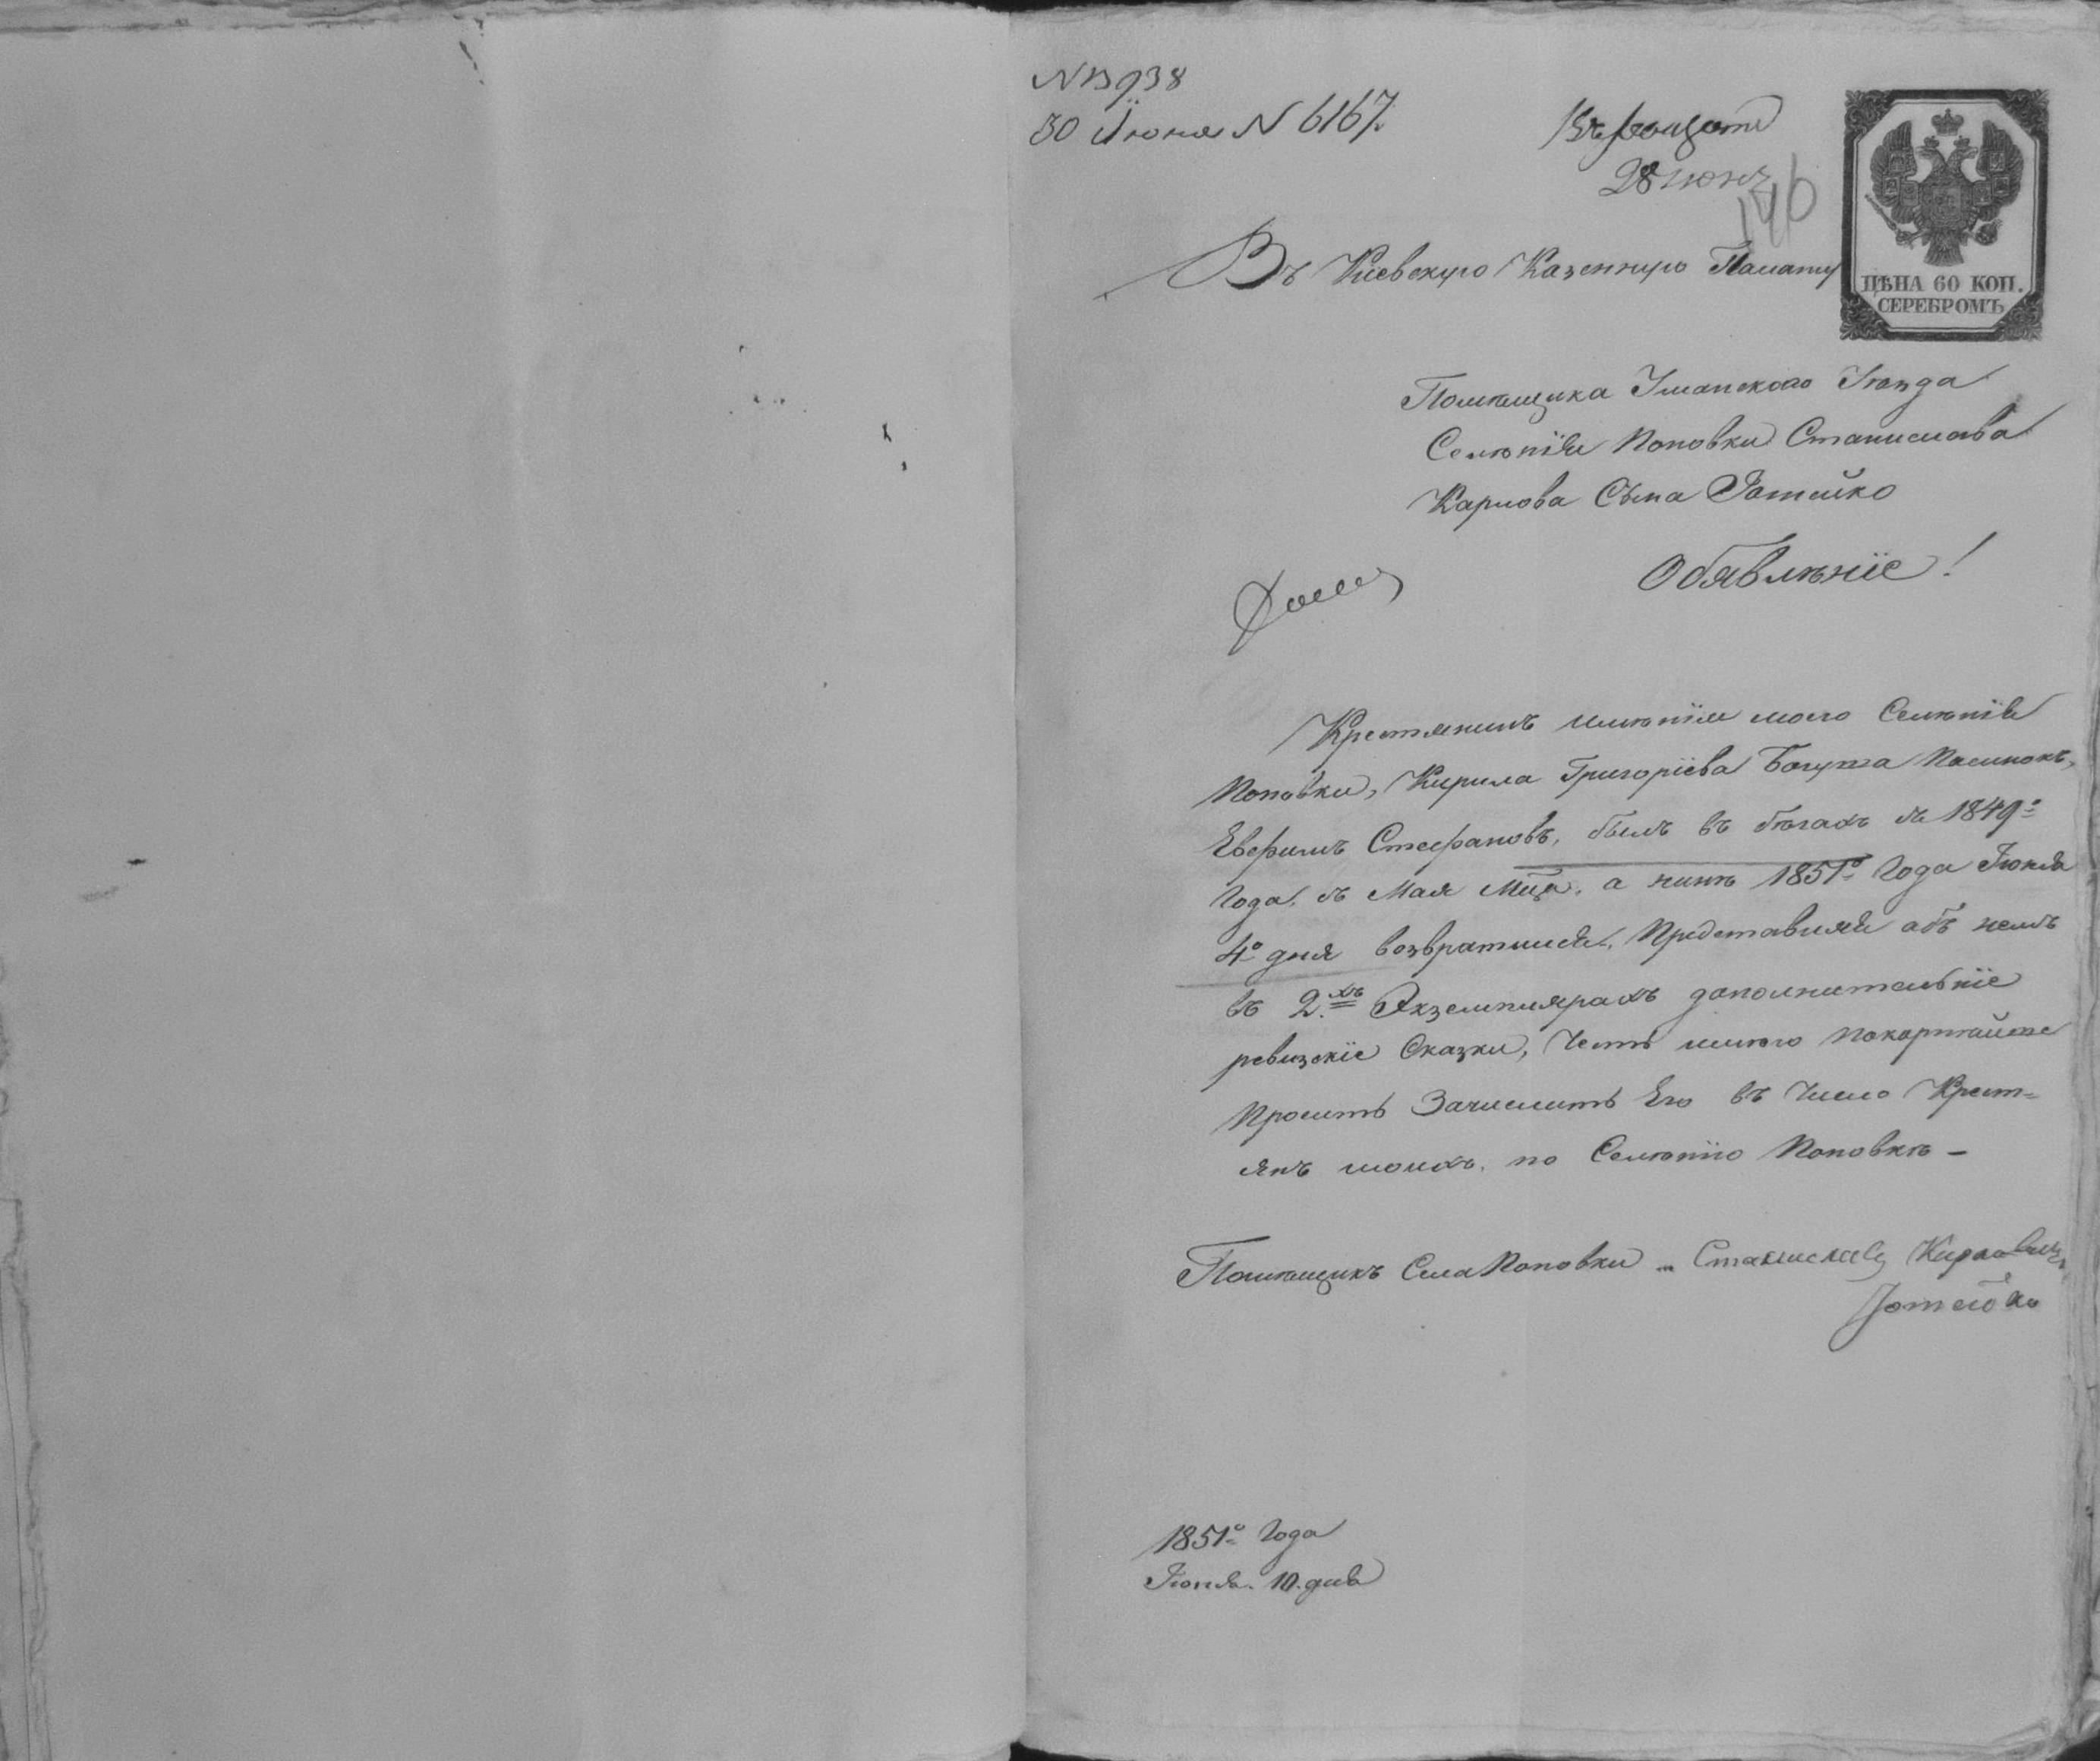 N 13938
30 Июня N 6167.
28 июня
146
Въ Кіевскую Казенную Палату
ЦѢНА 60 КОП.
СЕРЕБРОМЪ
Помѣщика Уманского Уѣзда
Селѣнія Поповки Станислава
Карлова Сына Готейко
Обявлѣніе!
Крестянинъ имѣнія моего Селѣнія
Поповки, Кирила Григоріева Богуша Пасинокъ,
Евфимъ Стефановъ, былъ въ бѣгахъ съ 1849го
Года, съ Мая Мца, а нинѣ 1851го Года Іюня
4го дня возвратился, Представляя объ немъ
въ 2.хъ Экземплярахъ дополнителніе
ревизскіе Сказки, Честь имѣю покорнѣйше
Просить Зачислить Его въ Число Крест=
янъ моихъ, по Селѣнію Поповкѣ –
Помѣщикъ Села Поповки Станиславъ Карловичъ
Готейко
1851го Года
Іюня. 10. дня